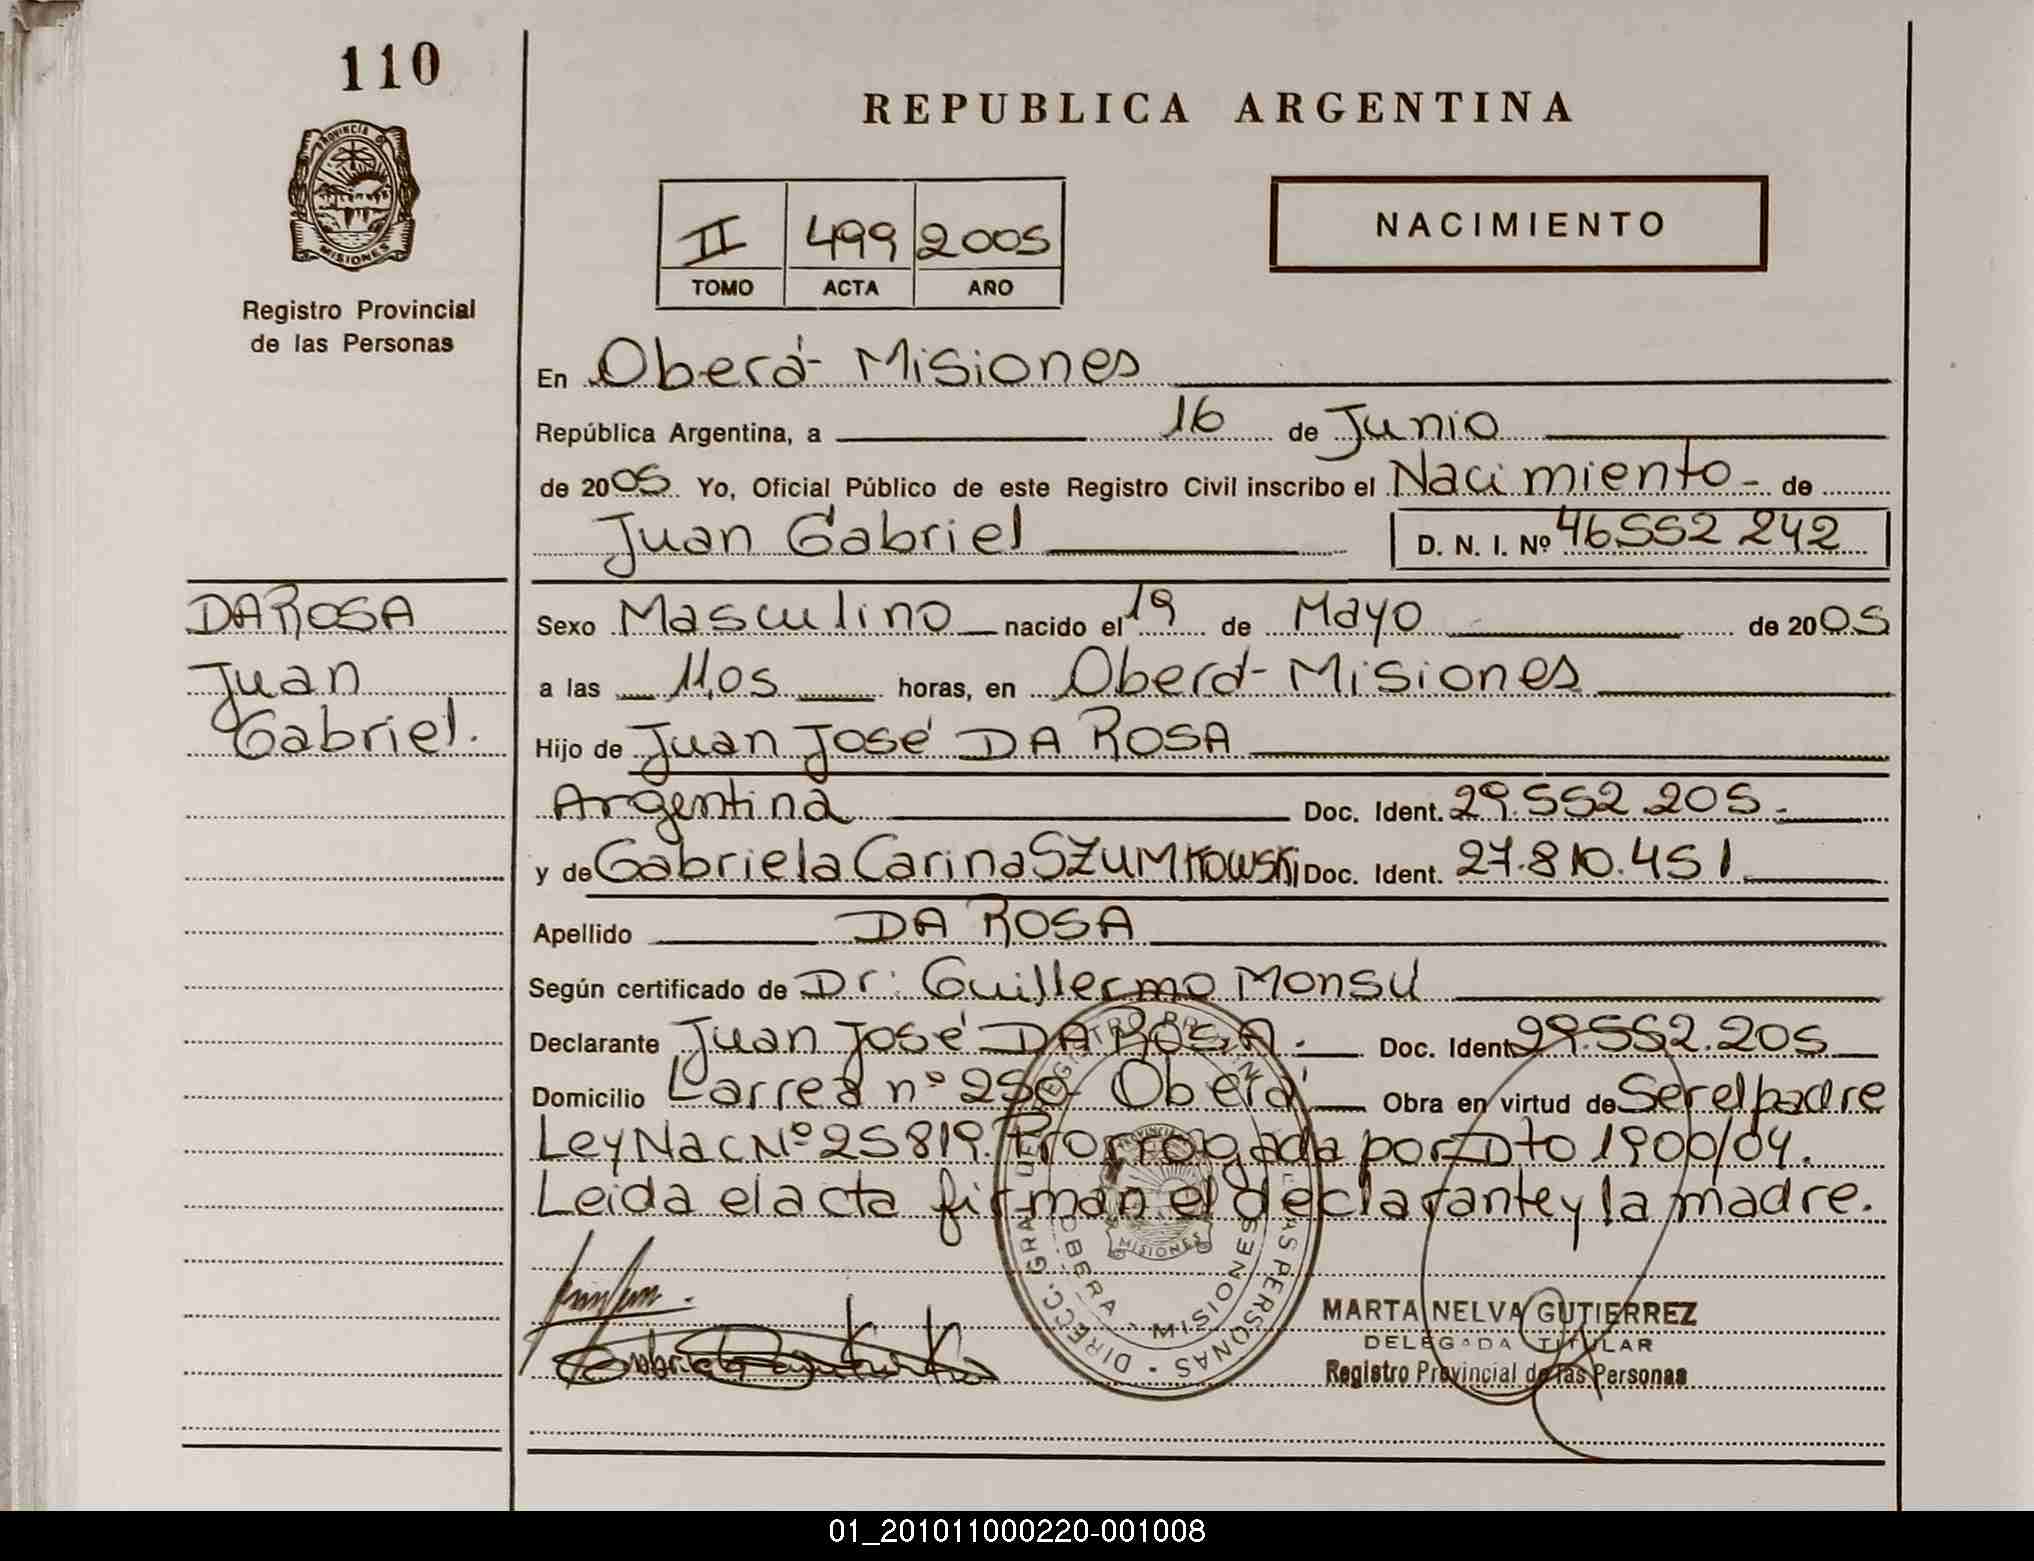 110
REPUBLICA ARGENTINA
PROVINCIA DE
MISIONES
Registro Provincial
de las Personas
II 499 2005
TOMO ACTA AÑO
NACIMIENTO
En Oberá - Misiones
República Argentina, a 16 de Junio
de 2005 Yo, Oficial Público de este Registro Civil inscribo el Nacimiento - de
Juan Gabriel D. N. I. Nº 46552242
DA ROSA
Juan
Gabriel.
Sexo Masculino nacido el 19 de Mayo de 2005
a las 11,05 horas, en Oberá - Misiones
Hijo de Juan José DA ROSA
Argentina Doc. Ident. 29.552.205.-
y de Gabriela Carina SZUMKOWSKi Doc. Ident. 27.810.451.
Apellido DA ROSA
Según certificado de Dr: Guillermo Monsu
Declarante Juan José DA ROSA.- Doc. Ident 29.552.205
Domicilio Larrea nº 250 Oberá Obra en virtud de Ser el padre
Ley Nac Nº 25819. Prorrogada por Dto 1900/04.
Leida el acta firman el declarante y la madre.
DIRECC. GRAL. DEL REGISTRO PROVINCIAL DE LAS PERSONAS
OBERA - MISIONES
PROVINCIA
MISIONES
MARTA NELVA GUTIERREZ
DELEGADA TITULAR
Registro Provincial de las Personas
01_201011000220-001008